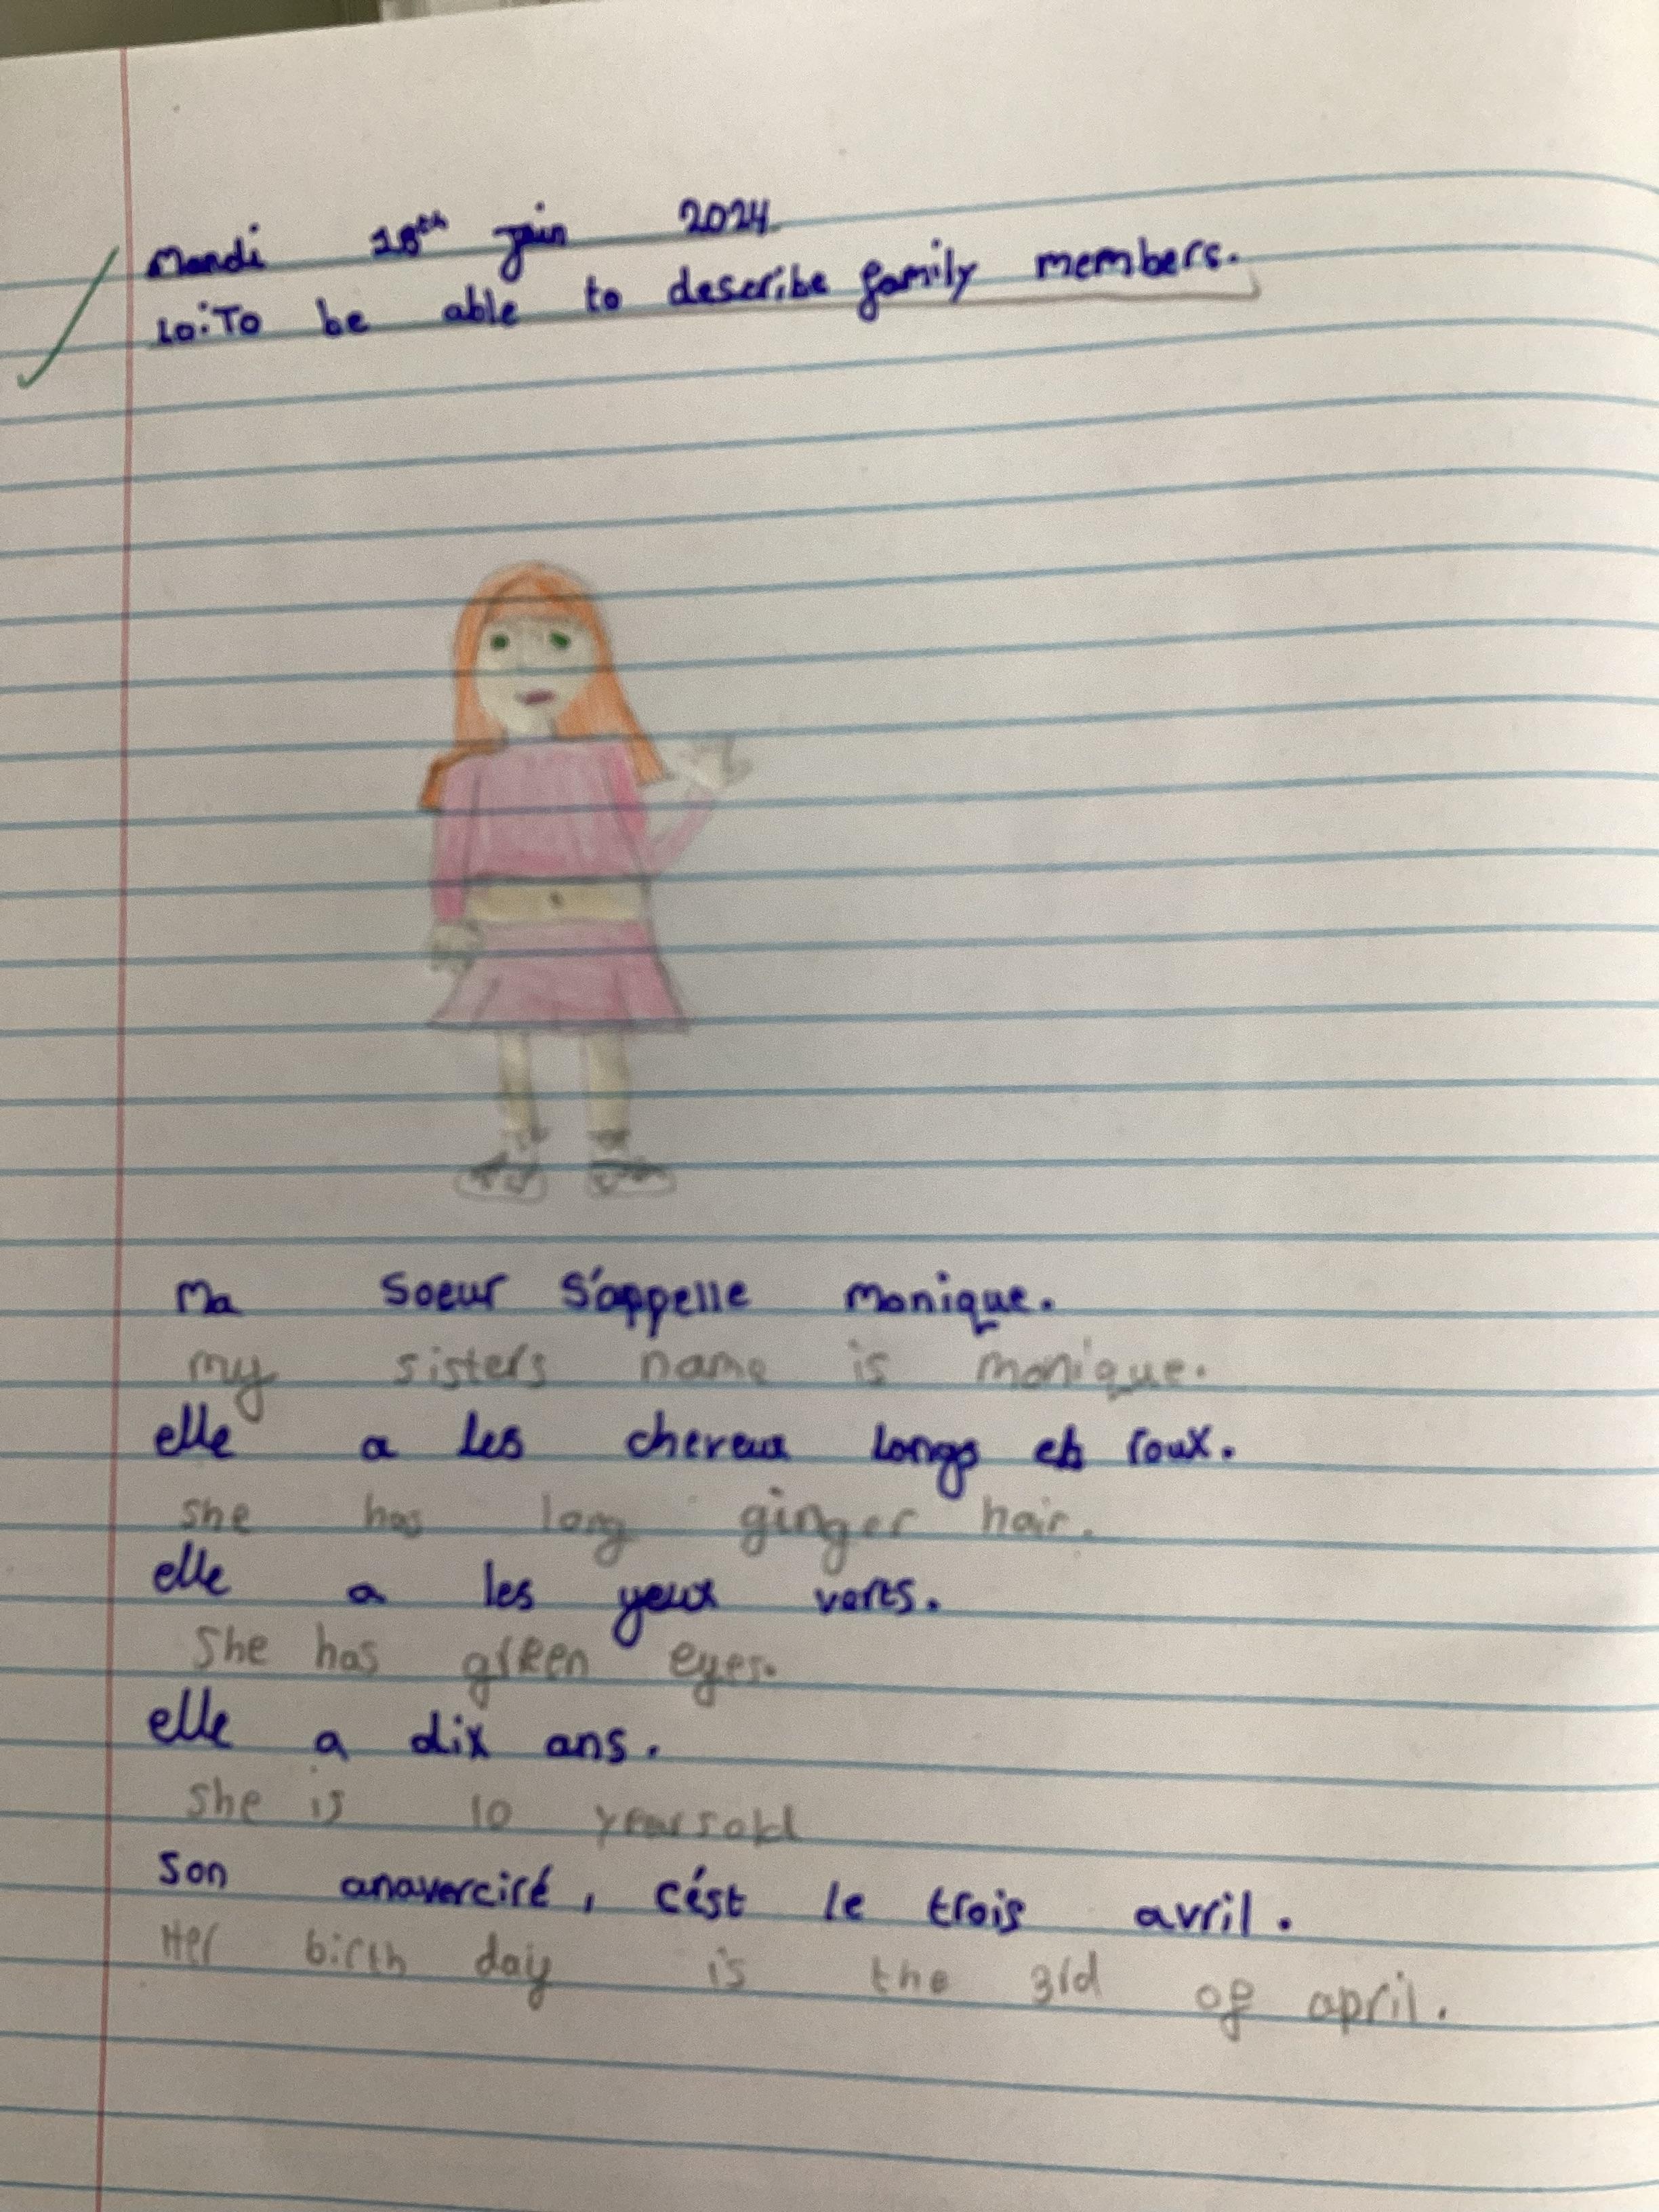 Mardi 18th juin 2024
LO: To be able to describe family members.
Ma soeur s'appelle monique.
my sisters name is monique.
elle a les cheveux longs et roux.
she has long ginger hair.
elle a les yeux verts.
She has green eyes.
elle a dix ans.
She is 10 years old
Son anaverciré, cést le trois avril.
Her birth day is the 3rd of april.